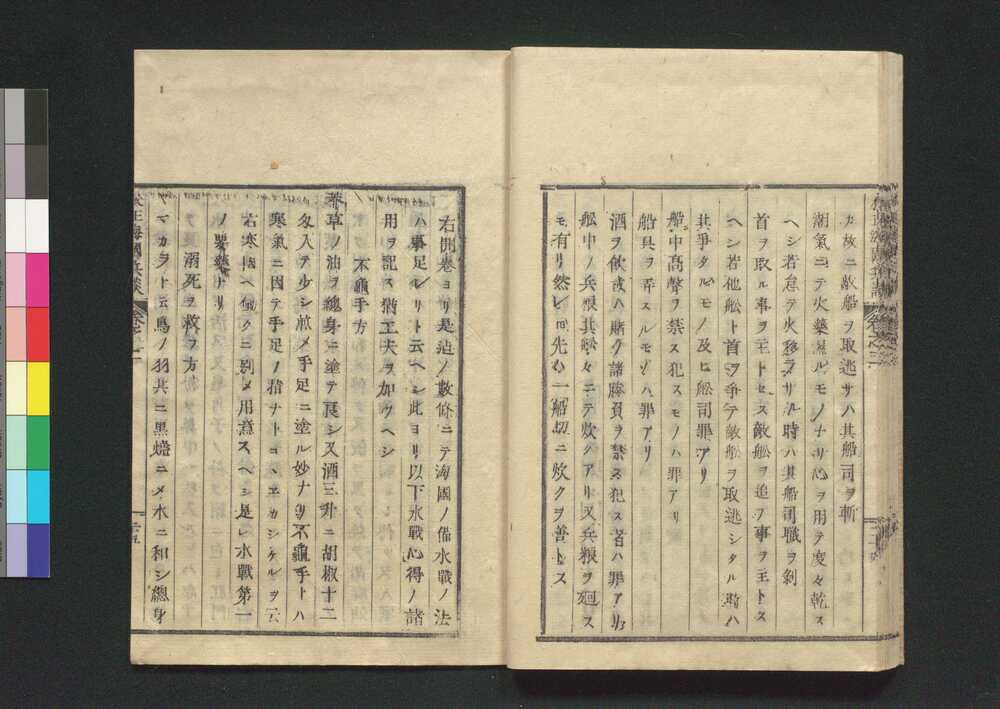 カ故ニ敵船ヲ取逃サハ其船司ヲ斬
潮氣ニテ火藥濕ルモノナリ心ヲ用テ度々乾ス
ヘシ若怠テ火移ラサル時ハ其船司職ヲ剝
首ヲ取ル事ヲ主トセス敵船ヲ追フ事ヲ主トス
ヘシ若他船ト首ヲ爭テ敵船ヲ取逃シタル時ハ
其爭タルモノ及ヒ船司罪アリ
船中髙聲ヲ禁ス犯スモノハ罪アリ
船具ヲ弄スルモノハ罪アリ
酒ヲ飮或ハ賭ケ諸勝負ヲ禁ス犯ス者ハ罪アリ
船中ノ兵粮其船々ニテ炊クアリ又兵粮ヲ廻ス
モ有リ然レ𪜈先ハ一船切ニ炊クヲ善トス
右開卷ヨリ是迠ノ數條ニテ海國ノ備水戰ノ法
ハ事足レリト云ヘシ此ヨリ以下水戰心得ノ諸
用ヲ記ス猶工夫ヲ加ウヘシ
不龜手方
草ノ油ヲ總身ニ塗テ良シ又酒三升ニ胡椒十二
匁入テ少シ煎メ手足ニ塗ル妙ナリ不龜手トハ
寒氣ニ因テ手足ノ指ナトコヽエカシケルヲ云
右寒國ヘ働クニ別メ用意スヘシ是レ水戰第一
ノ要藥ナリ
溺死ヲ救フ方
ヤマカラト云鳥ノ羽共ニ黒燒ニメ水ニ和シ總身
校正海國兵談
卷之二